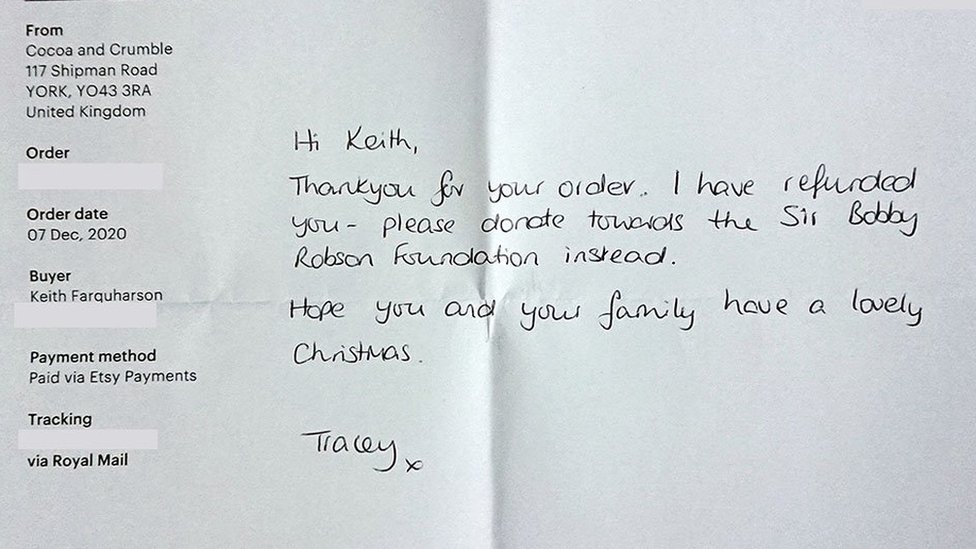 From
Cocoa and Crumble
117 Shipman Road
YORK, YO43 3RA
United Kingdom
Order
Order date
07 Dec, 2020
Buyer
Keith Farquharson
Payment method
Paid via Etsy Payments
Tracking
via Royal Mail
Hi Keith,
Thankyou for your order. I have refunded
you - please donate towards the Sir Bobby
Robson Foundation instead.
Hope you and your family have a lovely
Christmas.
Tracey x